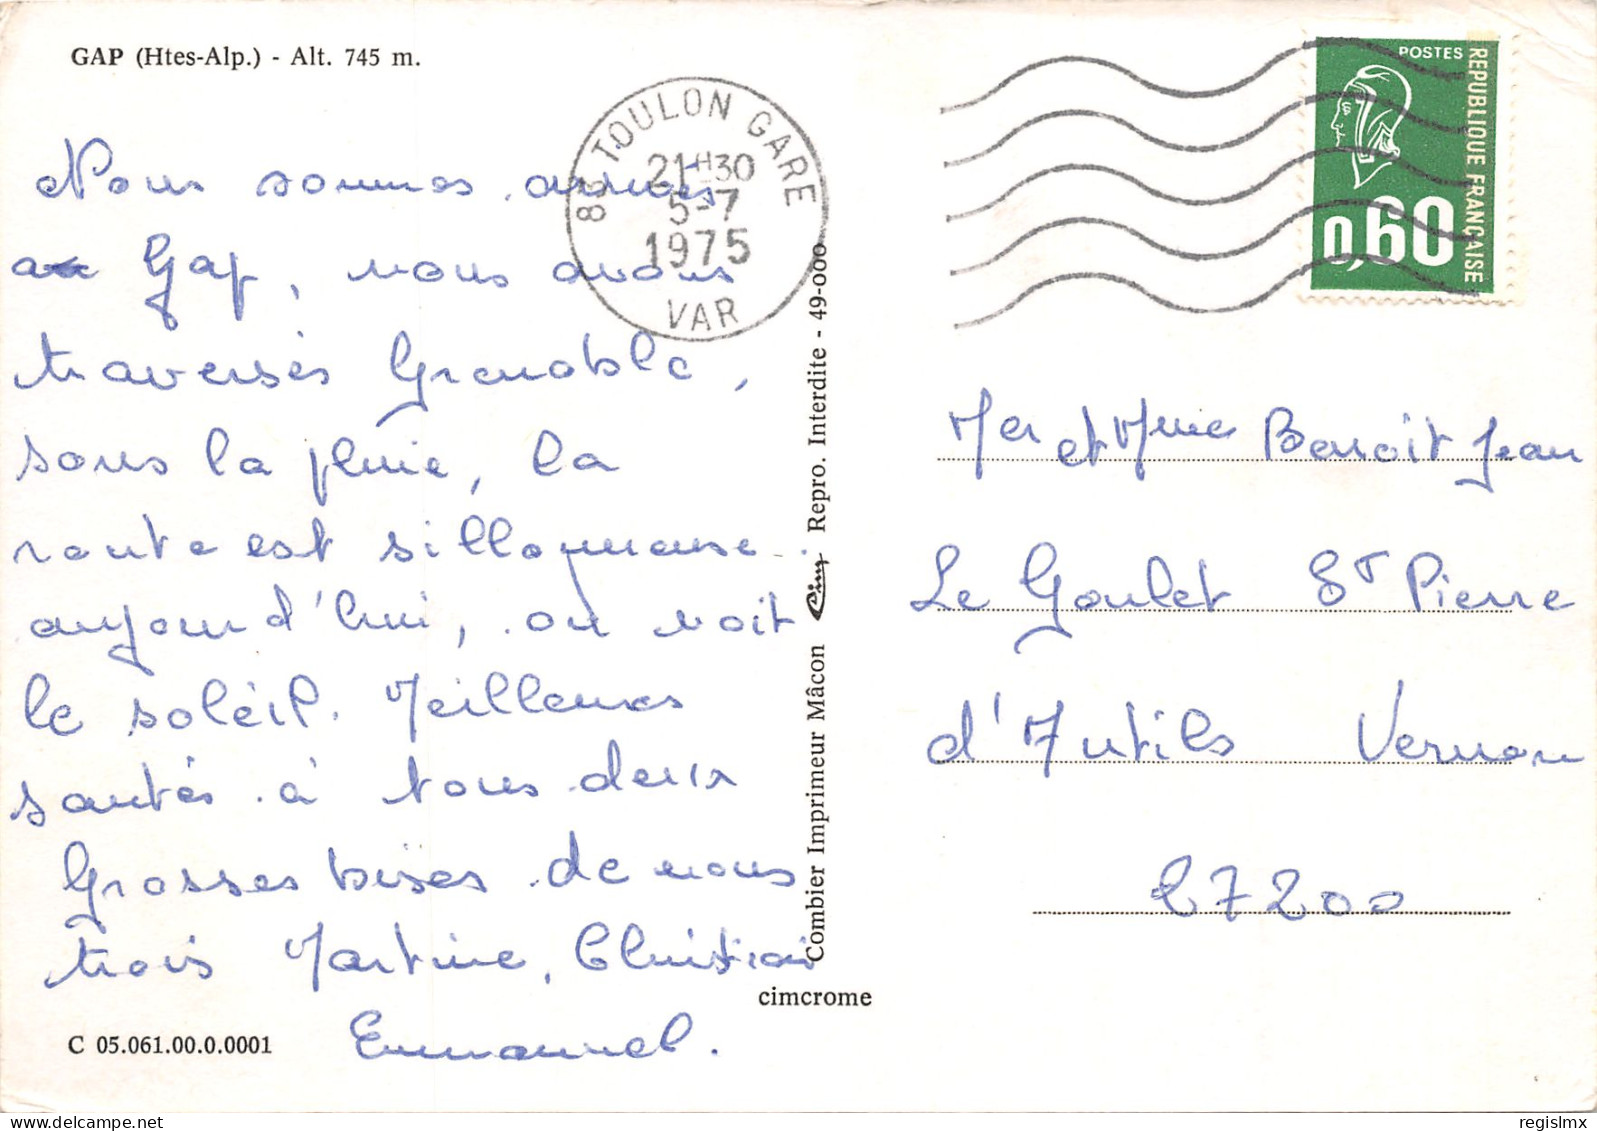 GAP (Htes-Alp.) - Alt. 745 m.
Nous sommes arrivés
a Gap, nous avons
traversés Grenoble,
sous la pluie, la
route est sillonneuse.
aujourd'hui, on voit
le soleil. Meilleures
santés à tous deux
Grosses bises de nous
trois Martine, Christian
Emmanuel.
C 05.061.00.0.0001
83 TOULON GARE
21H30
5-7
1975
VAR
Combier Imprimeur Mâcon Cim Repro. Interdite - 49-000
cimcrome
POSTES
REPUBLIQUE FRANÇAISE
0,60
Mer et Mme Benoit Jean
Le Goulet St Pierre
d'Autils Vernon
27200
regislmx